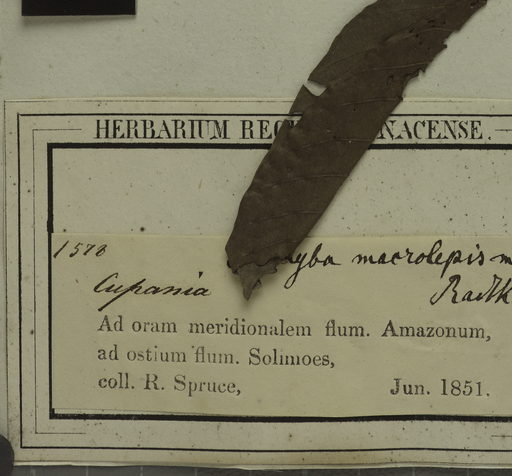 HERBARIUM REG NACENSE.
1578
yba macrolepis m
Cupania Radlk
Ad oram meridionalem flum. Amazonum,
ad ostium flum. Solimoes,
coll. R. Spruce, Jun. 1851.